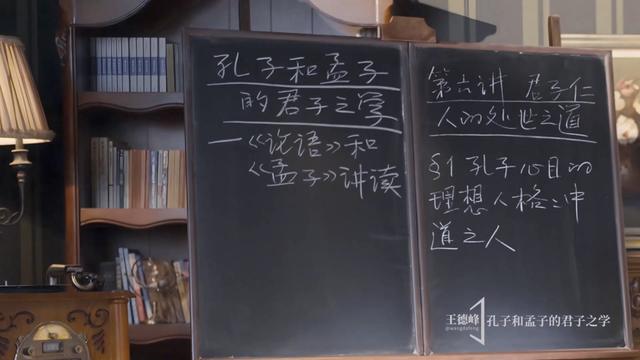 孔子和孟子
的君子之学
—《论语》和
《孟子》讲读
第六讲 君子仁
人的处世之道
§1 孔子心目的
理想人格:中
道之人
王德峰
@wangdefeng
孔子和孟子的君子之学